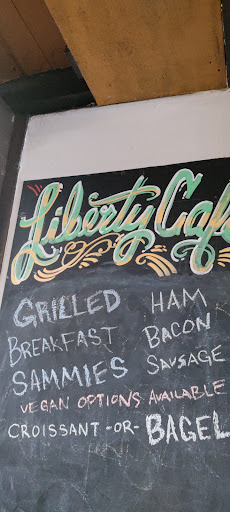 Liberty Caf
GRILLED HAM
BREAKFAST BACON
SAMMIES SAUSAGE
VEGAN OPTIONS AVAILABLE
CROISSANT -OR- BAGEL